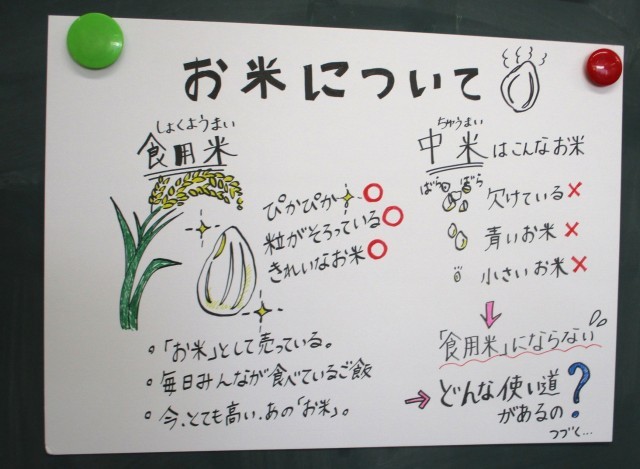 お米について
しょくようまい
食用米
ぴかぴか
粒がそろっている
きれいなお米
。「お米」として売っている。
。毎日みんなが食べているご飯
。今、とても高い、あの「お米」。
ちゅうまい
中米はこんなお米
ばら ばら
欠けている×
青いお米×
小さいお米×
↓
「食用米」にならない
→どんな使い道
があるの?
つづく…